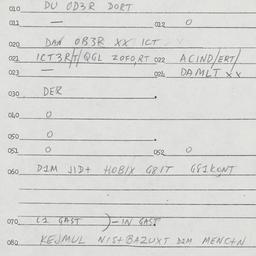 010 DU OD3R DORT
011 — 012 0
020 DAN OB3R XX ICT
021 ICT3R/T/QGL ZOFORT 022 ACIND/ERT/
023 — 024 DAMLT XX
030 DER .
040 0
050 0 .
051 0 052 0
060 D1M JID+ HOBIX G8IT G81KONT
070 (1 GAST )-IN GAST
080 KEJMUL NIS+BAZUXT D1M MENC+N